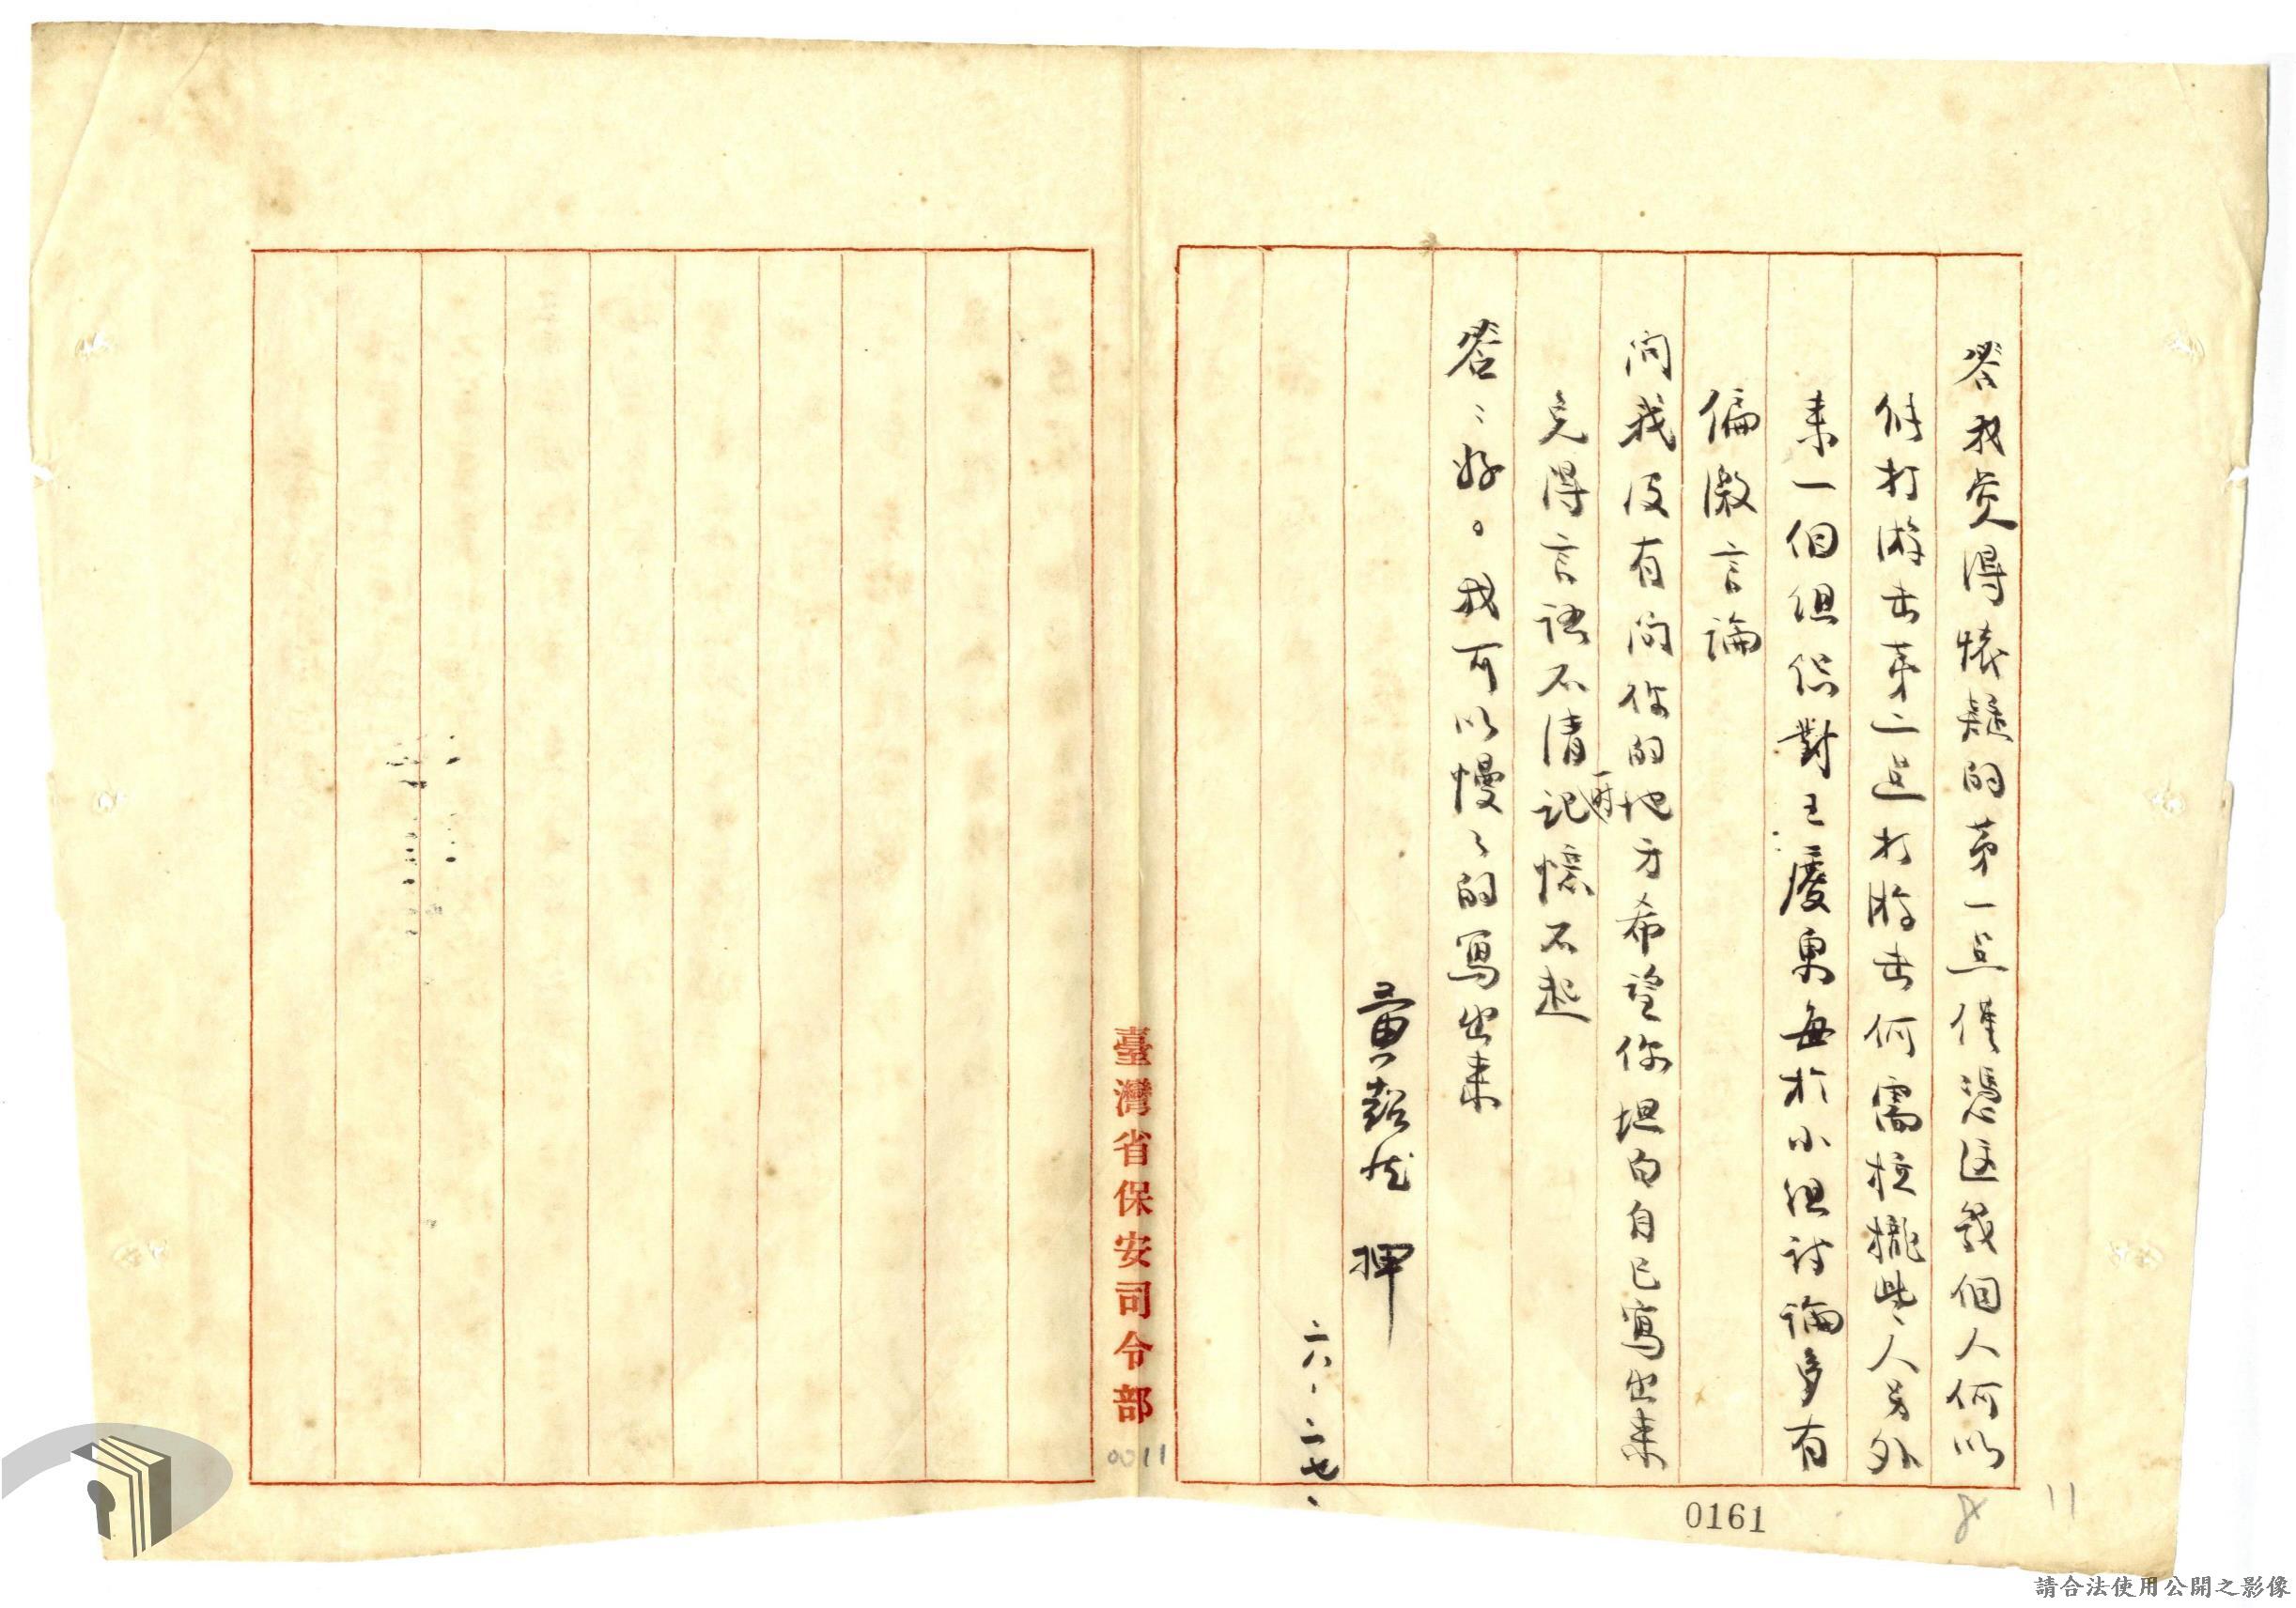 答我覺得懷疑的第一点僅憑這幾個人何以
付打游击第二点打游击何需拉攏些人另外
来一個組織對王慶東每於小組討論多有
偏激言論
問我没有問你的地方希望你坦白自己寫出来
一時
免得言語不清記憶不起
答：好。我可以慢〻的寫出来
黃 押
六．二七．
臺灣省保安司令部
0011
0161
8
11
請合法使用公開之影像